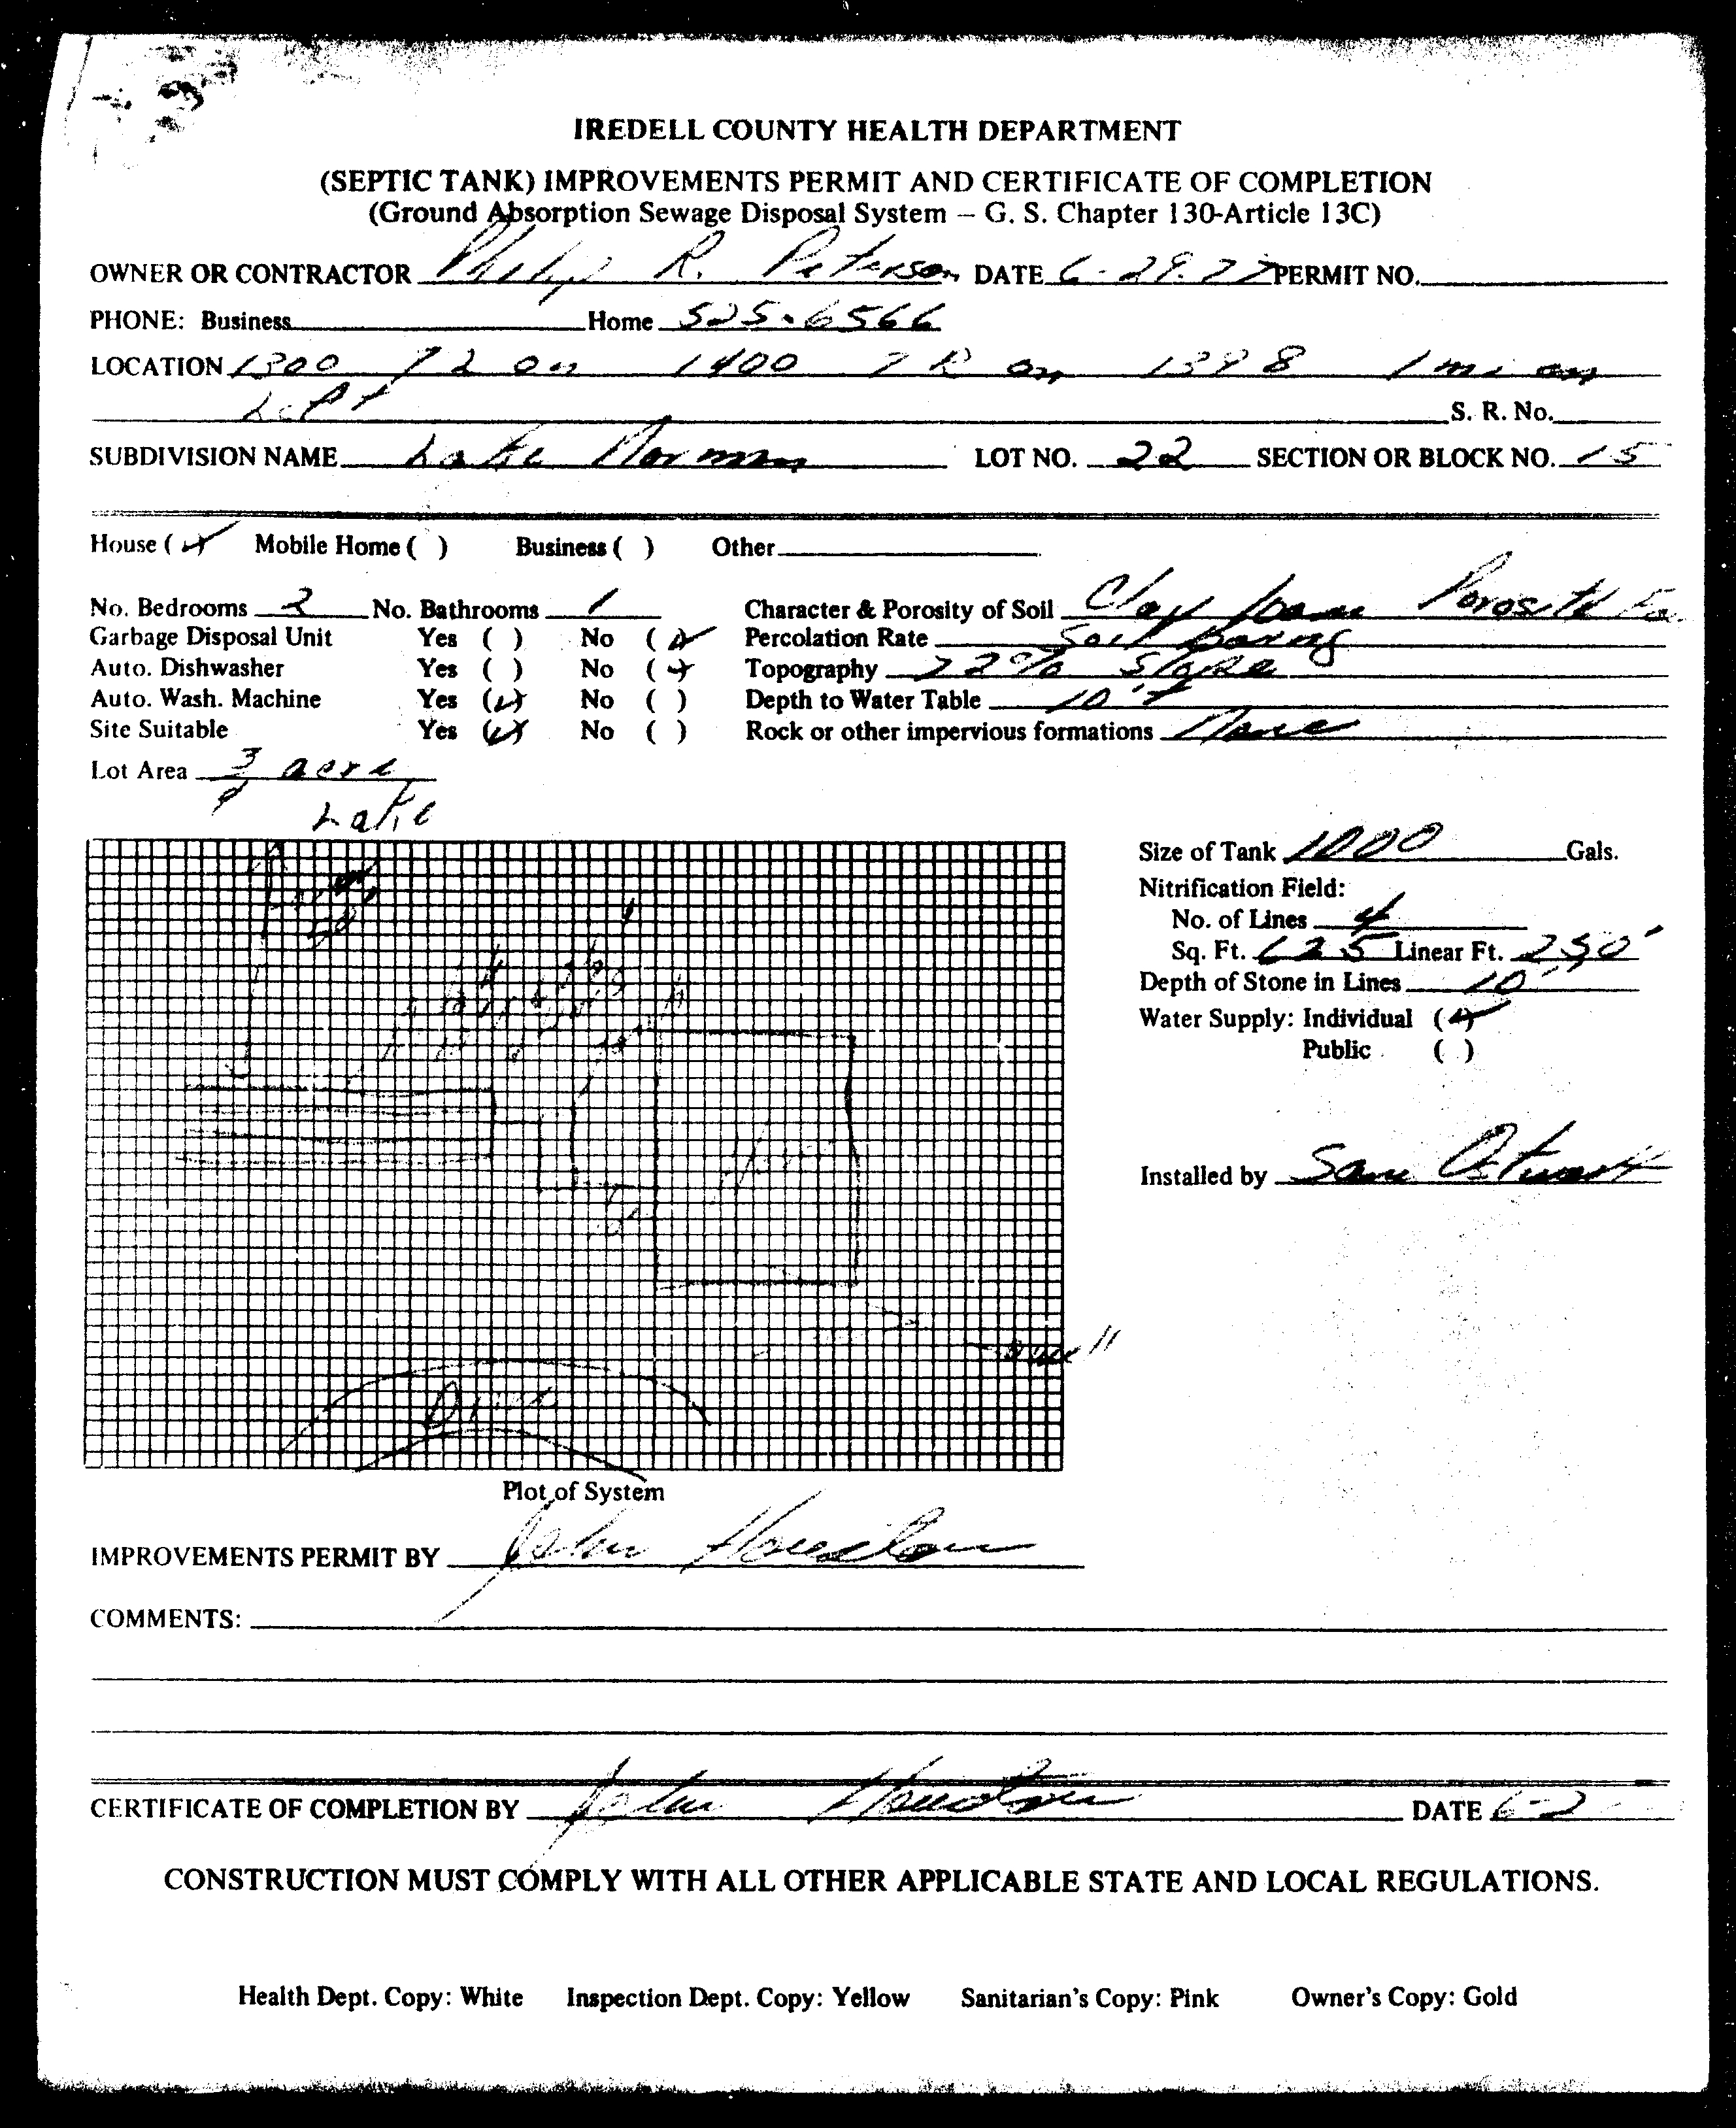 IREDELL COUNTY HEALTH DEPARTMENT
(SEPTIC TANK) IMPROVEMENTS PERMIT AND CERTIFICATE OF COMPLETION
(Ground Absorption Sewage Disposal System – G. S. Chapter 130-Article 13C)
OWNER OR CONTRACTOR Philip R. Peterson DATE 6-29-77 PERMIT NO.
PHONE: Business Home 525-6566
LOCATION 1300 on 1400 on 1398 1 mi on
Left S. R. No.
SUBDIVISION NAME Lake Norman LOT NO. 22 SECTION OR BLOCK NO. 15
House ( ) Mobile Home ( ) Business ( ) Other
No. Bedrooms 2 No. Bathrooms 1 Character & Porosity of Soil Clay loam
Garbage Disposal Unit Yes ( ) No ( ) Percolation Rate Soil boring
Auto. Dishwasher Yes ( ) No ( ) Topography 22% Slope
Auto. Wash. Machine Yes ( ) No ( ) Depth to Water Table 10'+
Site Suitable Yes ( ) No ( ) Rock or other impervious formations None
Lot Area 3/4 acre
Lake
Size of Tank 1000 Gals.
Nitrification Field:
No. of Lines 4
Sq. Ft. 625 Linear Ft. 250'
Depth of Stone in Lines 10"
Water Supply: Individual ( )
Public ( )
Installed by Sam
Drive
Well
Plot of System
IMPROVEMENTS PERMIT BY John Houston
COMMENTS:
CERTIFICATE OF COMPLETION BY John Houston DATE 6-2
CONSTRUCTION MUST COMPLY WITH ALL OTHER APPLICABLE STATE AND LOCAL REGULATIONS.
Health Dept. Copy: White Inspection Dept. Copy: Yellow Sanitarian's Copy: Pink Owner's Copy: Gold